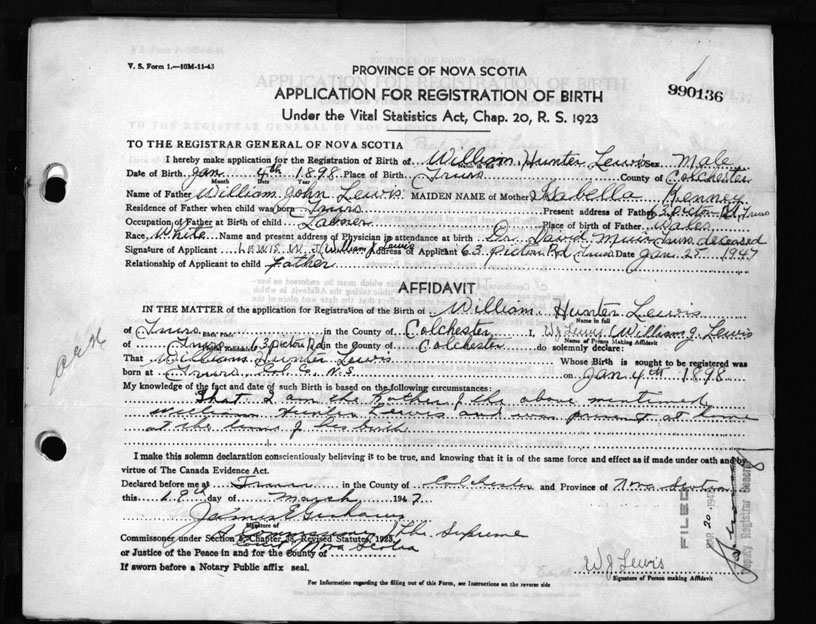 V. S. Form 1.—10M-11-43
990136
PROVINCE OF NOVA SCOTIA
APPLICATION FOR REGISTRATION OF BIRTH
Under the Vital Statistics Act, Chap. 20, R. S. 1923
TO THE REGISTRAR GENERAL OF NOVA SCOTIA
I hereby make application for the Registration of Birth of William Hunter Lewis Sex Male
Date of Birth Jan 4th 1898 Place of Birth Truro County of Colchester
Month Date Year
Name of Father William John Lewis MAIDEN NAME of Mother Isabella Kenney
Residence of Father when child was born Truro Present address of Father 63 Picton Rd, Truro
Occupation of Father at Birth of child Laborer Place of birth of Father Wales
Race White Name and present address of Physician in attendance at birth Dr. David Muir Truro deceased
Signature of Applicant LEWIS W J William J Lewis Address of Applicant 63 Picton Rd Truro Date Jan 25th 1947
Relationship of Applicant to child Father
AFFIDAVIT
IN THE MATTER of the application for Registration of the Birth of William Hunter Lewis
Name in full
of Truro in the County of Colchester I, W J Lewis (William J. Lewis
Birth Place Name of Person Making Affidavit
of Truro 63 Picton Rd in the County of Colchester do solemnly declare:
That William Hunter Lewis Whose Birth is sought to be registered was
born at Truro Col. Co. N.S on Jan 4th 1898
My knowledge of the fact and date of such Birth is based on the following circumstances:
That I am the Father of the above mentioned
William Hunter Lewis and was present at home
at the time of his birth
I make this solemn declaration conscientiously believing it to be true, and knowing that it is of the same force and effect as if made under oath and by
virtue of The Canada Evidence Act.
Declared before me at Truro in the County of Colchester and Province of Nova Scotia
this 19th day of March 1947
Signature of
A Commissioner of the Supreme
Commissioner under Section 3, Chapter 38, Revised Statutes, 1923,
Court Nova Scotia
or Justice of the Peace in and for the County of
If sworn before a Notary Public affix seal.
W J Lewis
Signature of Person making Affidavit
For Information regarding the filling out of this Form, see Instructions on the reverse side
FILED
MAR 20 194
Deputy Registrar General